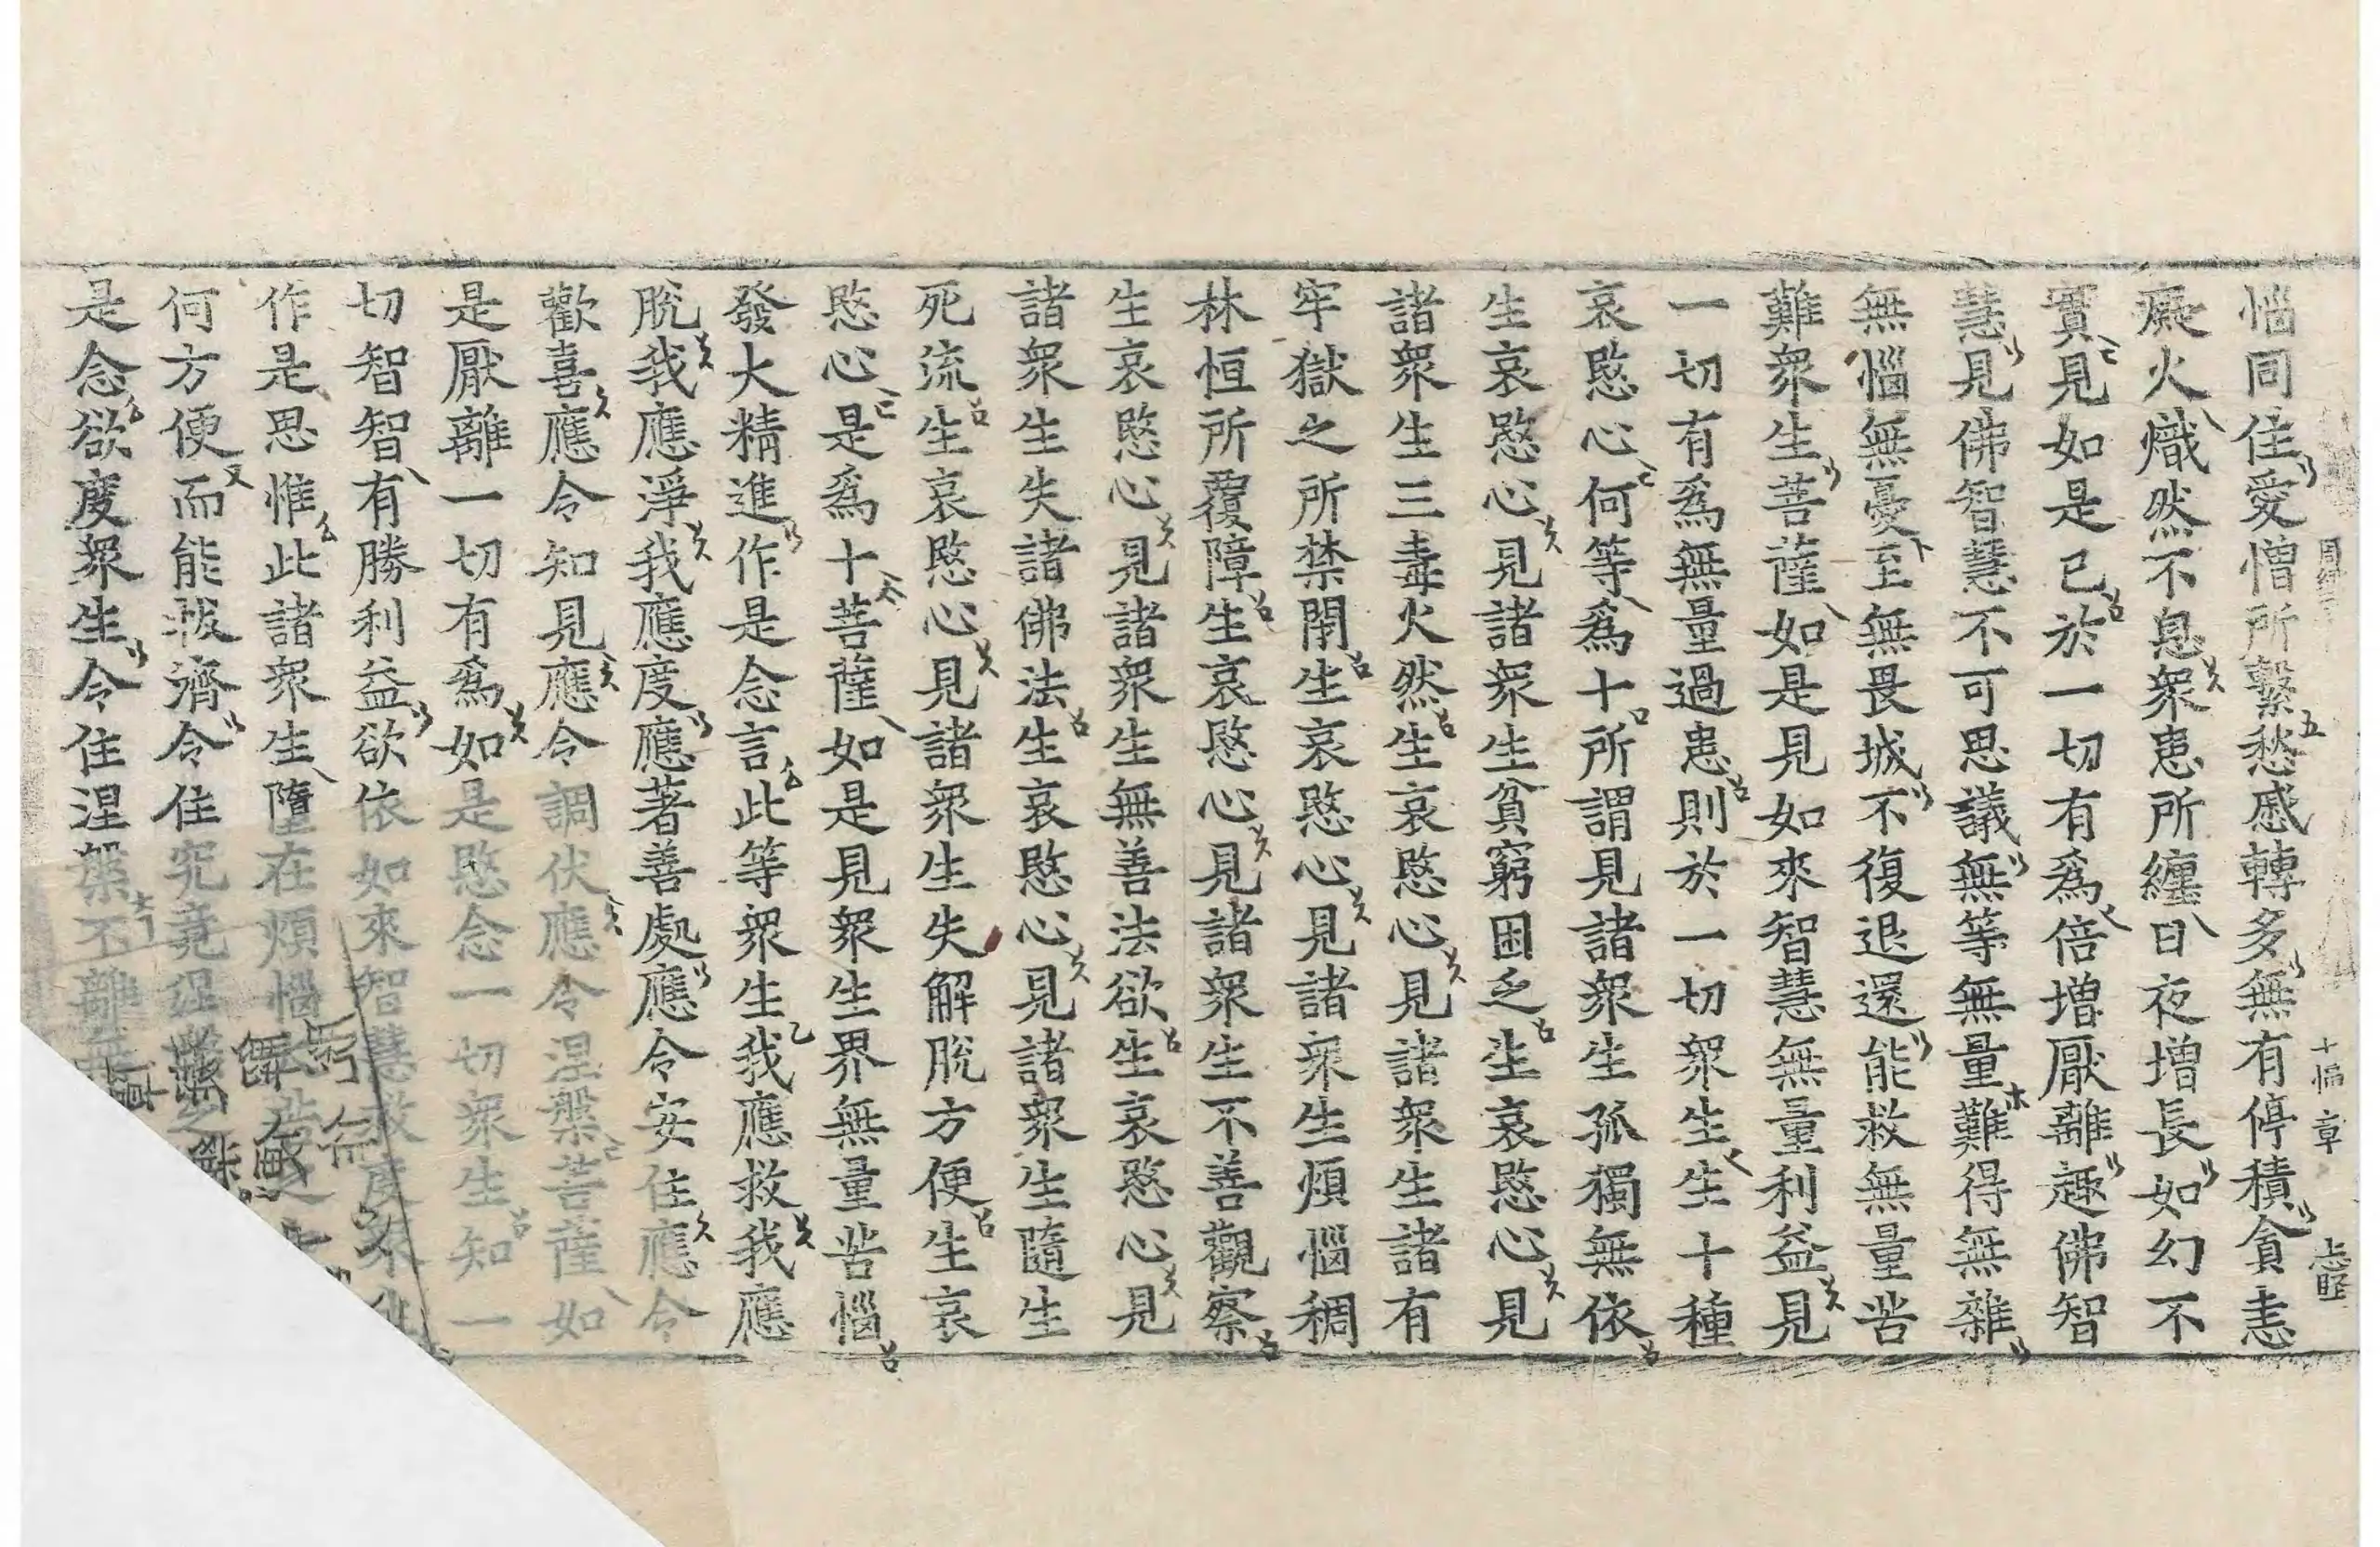 惱同住愛憎所繫愁慼轉多無有停積貪恚
癡火熾然不息衆患所纏日夜增長如幻不
實見如是已於一切有爲倍增厭離趣佛智
慧見佛智慧不可思議無等無量難得無雜
無惱無憂至無畏城不復退還能救無量苦
難衆生菩薩如是見如來智慧無量利益見
一切有爲無量過患則於一切衆生生十種
哀愍心何等爲十所謂見諸衆生孤獨無依
生哀愍心見諸衆生貧窮困乏生哀愍心見
諸衆生三毒火然生哀愍心見諸衆生諸有
牢獄之所禁閉生哀愍心見諸衆生煩惱稠
林恒所覆障生哀愍心見諸衆生不善觀察
生哀愍心見諸衆生無善法欲生哀愍心見
諸衆生失諸佛法生哀愍心見諸衆生隨生
死流生哀愍心見諸衆生失解脫方便生哀
愍心是爲十菩薩如是見衆生界無量苦惱
發大精進作是念言此等衆生我應救我應
脫我應淨我應度應著善處應令安住應令
歡喜應令知見應令調伏應令涅槃菩薩如
是厭離一切有爲如是愍念一切衆生知一
切智智有勝利益欲依如來智慧救度衆
作是思惟此諸衆生墮在煩惱
何方便而能拔濟令住究竟涅槃之
是念欲度衆生令住涅槃不離無